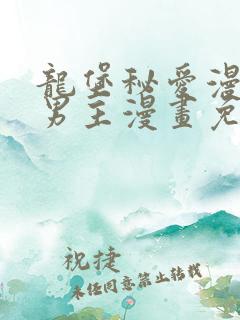 龍堡秘愛漫
男主漫畫免
祝捷
未经同意禁止转载